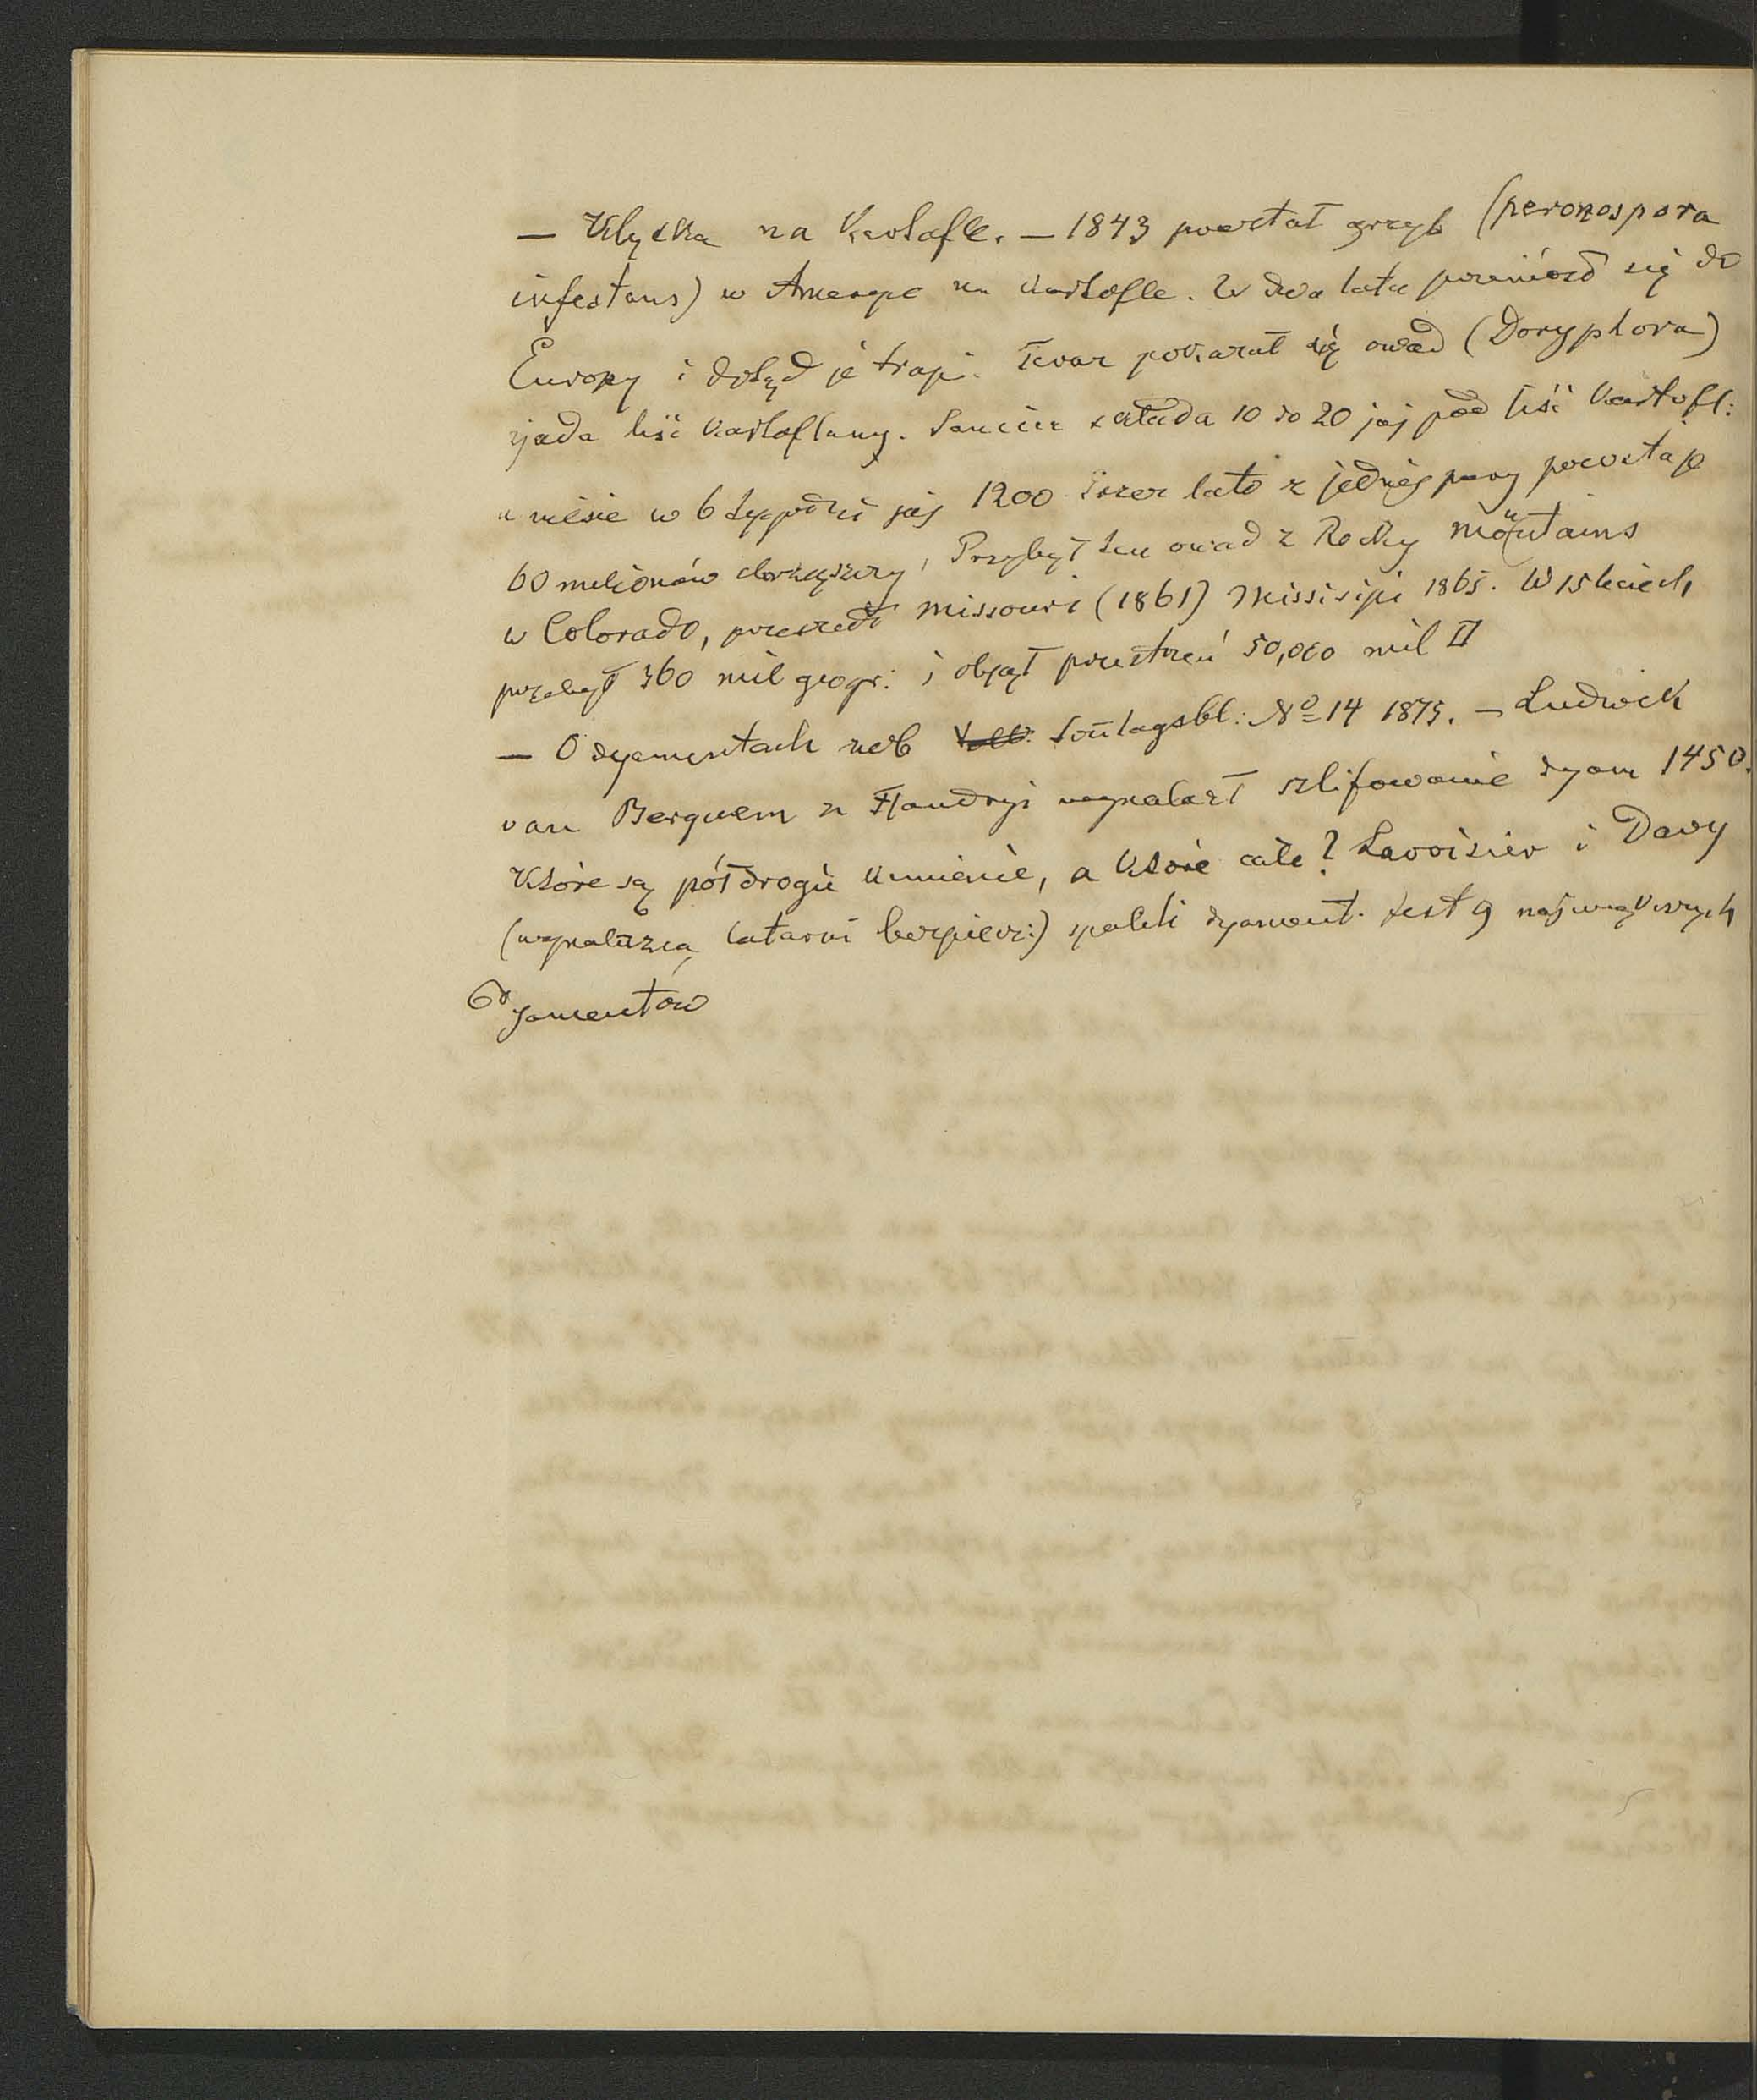 — Klęska na Kartofle. — 1843 powstał grzyb (peronospora
infestans) w Ameryce na Kartofle. W dwa lata przeniósł się do
Europy i dotąd je trapi. Teraz pokazał się owad (Doryphora)
zjada liść Kartoflany. Samica składa 10 do 20 jaj pod liść Kartofl:
a niesie w 6 tygodni jaj 1200 przez lato z jednéj pary powstaje
60 milionów chrząszczy, Przybył ten owad z Rocky mountains
w Colorado, przeszedł Missouri (1861) Missisipi 1865. W 15 leciech
przebył 360 mil geogr: i objął przestrzeń 50,000 mil □
— O dyamentach zob Sontagsbl: No 14 1875. — Ludwick
van Berquem z Flandryi wynalazł szlifowanie dyam 1450.
Które są półdrogie Kamienie, a Które całe? Lavoisier i Davy
(wynalazca latarni bezpiecz:) spalili dyament. Jest 9 największych
dyamentów